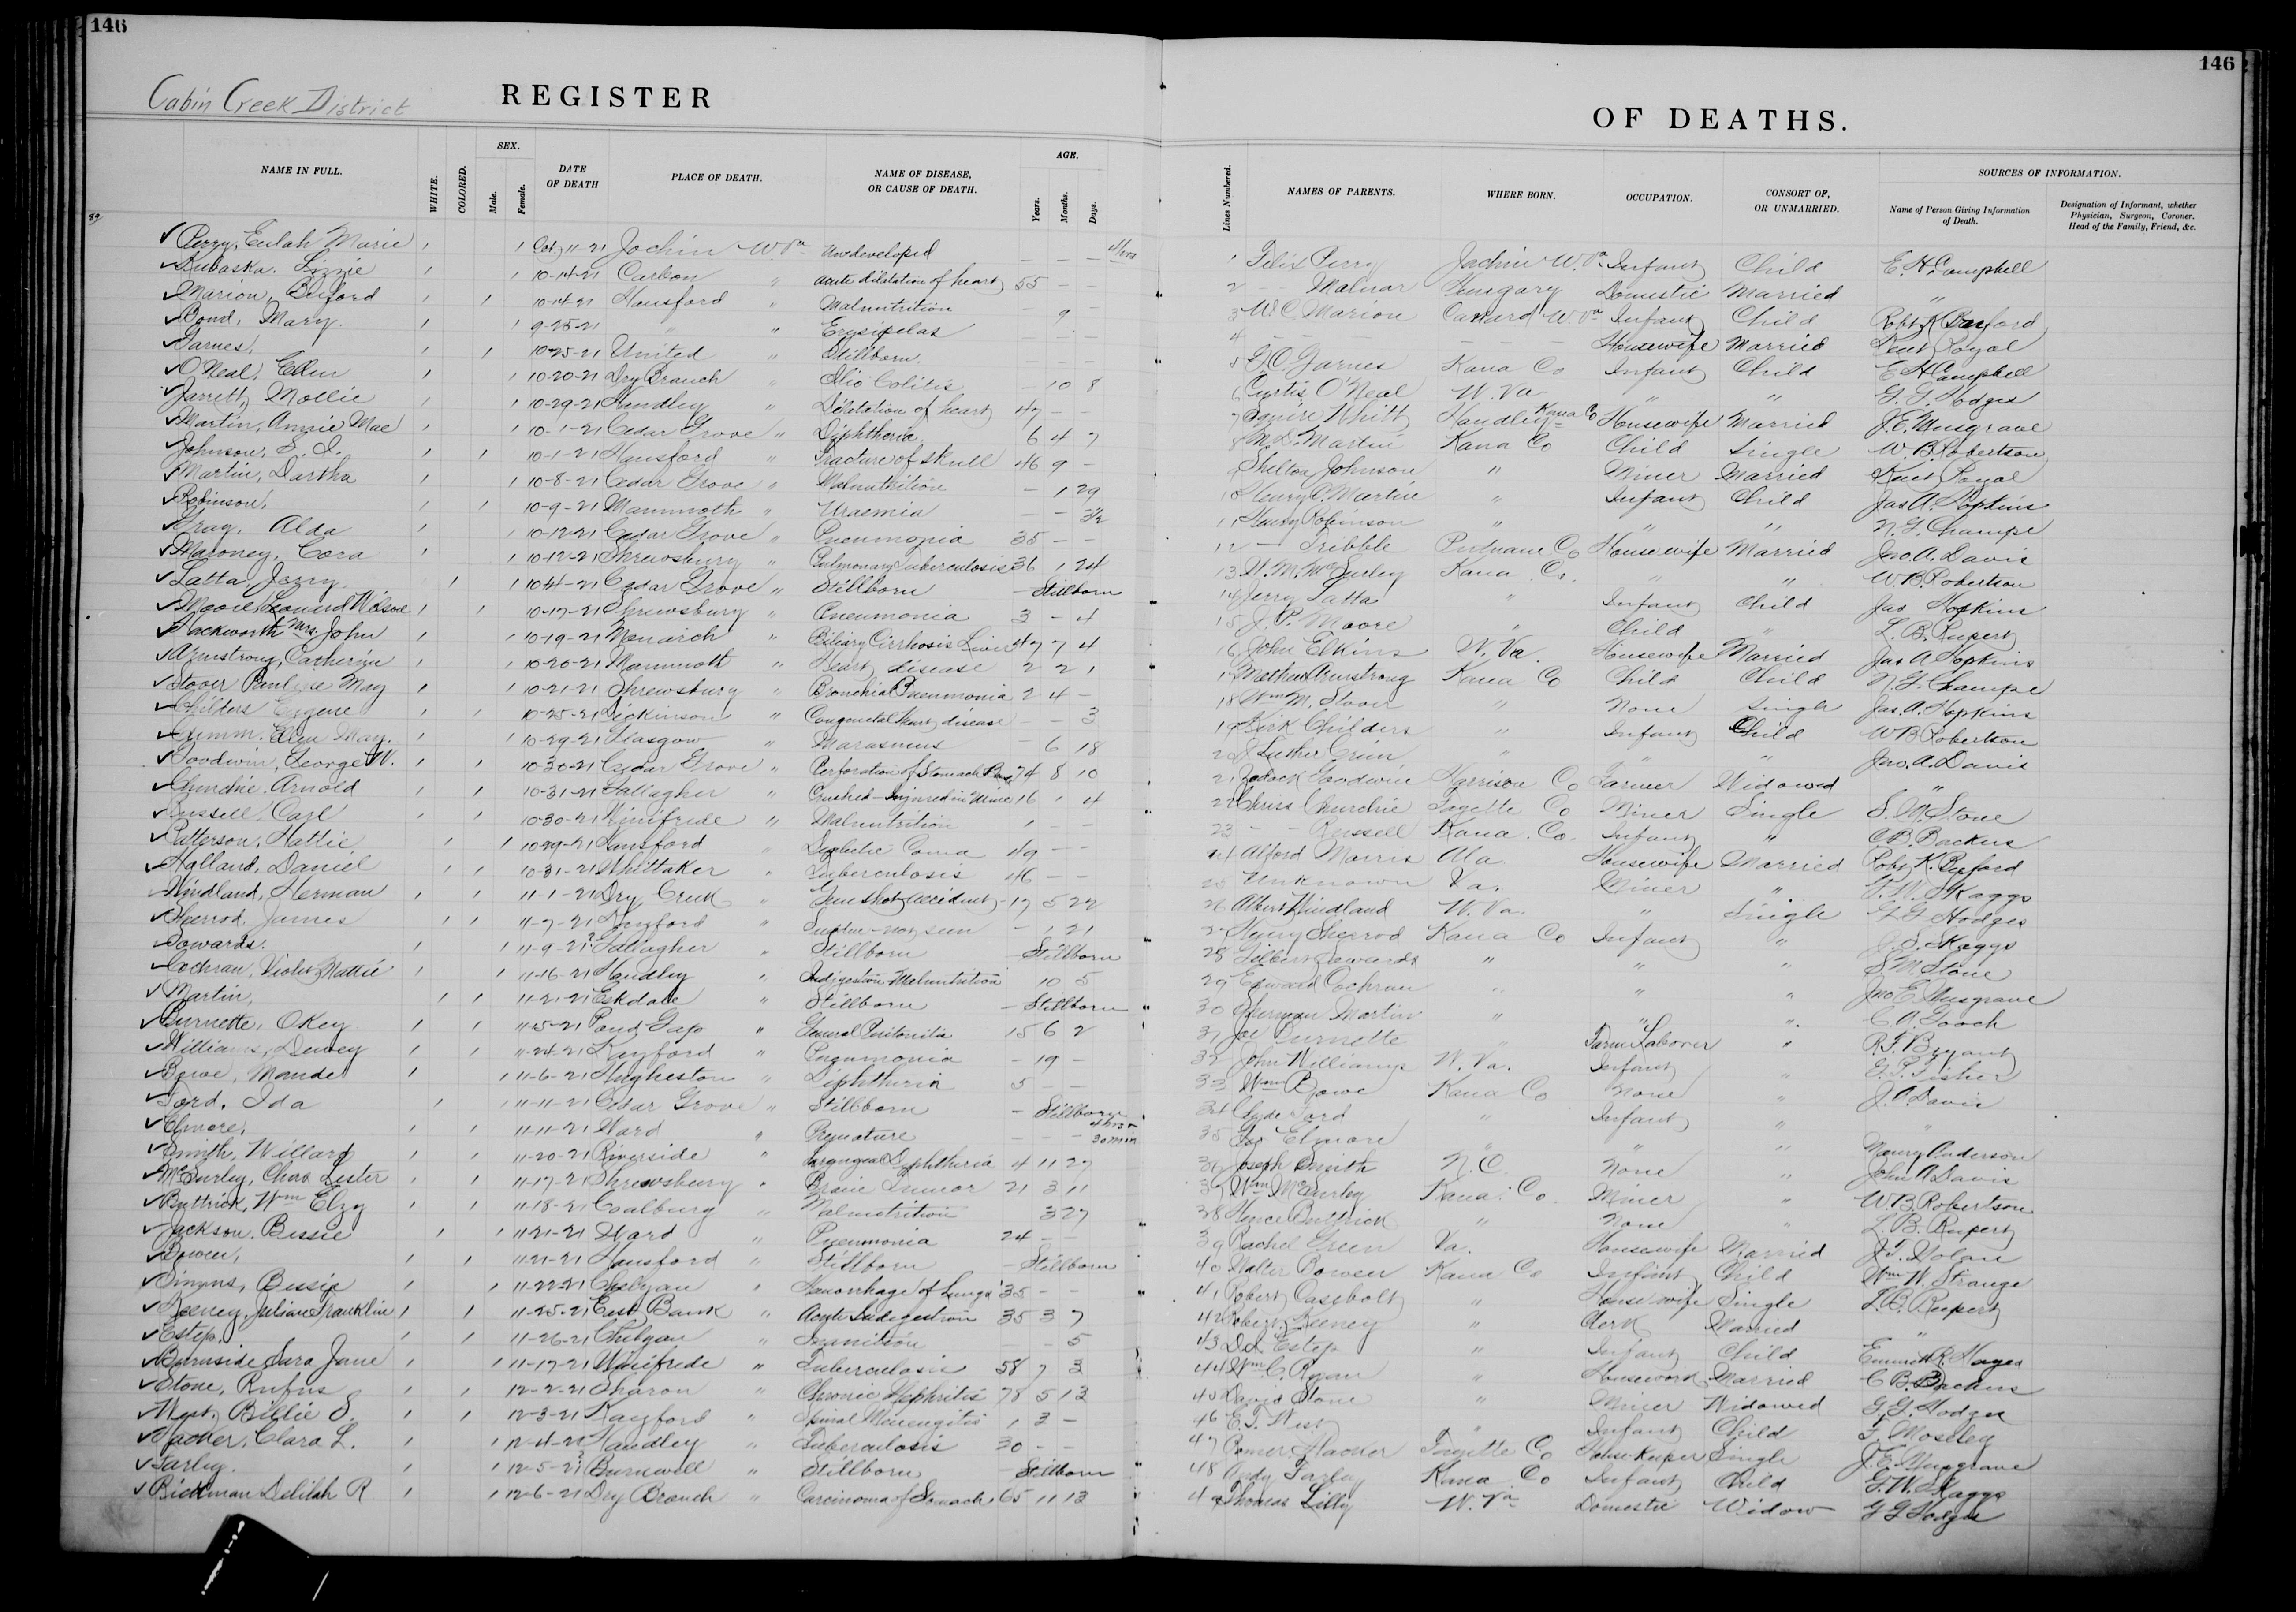 146
146
Cabin Creek District
REGISTER
OF DEATHS.
NAME IN FULL. WHITE. COLORED. SEX. Male. Female. DATE OF DEATH PLACE OF DEATH. NAME OF DISEASE, OR CAUSE OF DEATH. AGE. Years. Months. Days. Lines Numbered. NAMES OF PARENTS. WHERE BORN. OCCUPATION. CONSORT OF, OR UNMARRIED. SOURCES OF INFORMATION. Name of Person Giving Information of Death. Designation of Informant, whether Physician, Surgeon, Coroner. Head of the Family, Friend, &c.
✓ Perry, Eulah Marie 1 1 Oct, 11-21 Jochin W.Va Undeveloped — — — 1 Felix Perry Jochin W.Va Infant Child E. H. Campbell
✓ Kubaska. Lizzie 1 1 10-14-21 Carbon " Acute dilatation of heart 55 — — 2 Molnar Hungary Domestic Married "
✓ Marion, Buford 1 1 10-14-21 Hansford " Malnutrition 9 — 3 W C Marion W.Va Infant Child Robt K Buford
✓ Bond, Mary. 1 1 9-25-21 " " Erysipelas — — — 4 — — — Housewife Married Kent Royal
✓ Jarnes, 1 1 10-25-21 United " Stillborn — — — 5 Jarnes Kana Co Infant Child E H Campbell
✓ O'Neal, Ellen 1 1 10-20-21 Dry Branch " Colitis — 10 8 6 Curtis O'Neal W. Va " " G. G. Hodges
✓ Jarrett, Mollie 1 1 10-29-21 Handley " Dilatation of heart 47 — — 7 Squire Whitt Handley Kana Co Housewife Married J. E. Musgrave
✓ Martin, Annie Mae 1 1 10-1-21 Cedar Grove " Diphtheria 6 4 7 8 Martin Kana Co Child Single W. B. Robertson
✓ Johnson, 1 1 10-1-21 Hansford " Fracture of skull 46 9 — 9 Shelton Johnson " Miner Married Kent Royal
✓ Martin, Dartha 1 1 10-8-21 Cedar Grove " Malnutrition — 1 29 10 Henry Martin " Infant Child Jas A. Hopkins
✓ Robinson, 1 1 10-9-21 Mammoth " Uraemia — — 3½ 11 Henry Robinson " " " N. G. Champe
✓ Gray, Alda 1 1 10-12-21 Cedar Grove " Pneumonia 35 — — 12 — Dribble Putnam Co Housewife Married Jno. A. Davis
✓ Maroney, Cora 1 1 10-12-21 Shrewsbury " Pulmonary Tuberculosis 36 1 24 13 W. M. McCurley Kana Co. " " W. B. Robertson
✓ Latta, Jerry 1 1 10-4-21 Cedar Grove " Stillborn — Stillborn 14 Jerry Latta " Infant Child Jas Hopkins
✓ Moore, Wilson 1 1 10-17-21 Shrewsbury " Pneumonia 3 — 4 15 J. P. Moore " Child " L. B. Rupert
✓ Hackworth Mrs. John 1 1 10-19-21 Monarch " Biliary Cirrhosis Liver 47 7 4 16 John Elkins W. Va. Housewife Married Jas A Hopkins
✓ Armstrong, Catherine 1 1 10-20-21 Mammoth " Heart disease 2 2 1 17 Mathew Armstrong Kana Co Child Child N. G. Champe
✓ Stover Pauline May 1 1 10-21-21 Shrewsbury " Bronchial Pneumonia 2 4 — 18 Wm M. Stover " None Single Jas. A. Hopkins
✓ Childers Eugene 1 1 10-25-21 Dickinson " Congenital heart disease — — 3 19 Kirk Childers " Infant Child W B Robertson
✓ Ellen May. 1 1 10-29-21 Glasgow " Marasmus — 6 18 20 Luther " " " Jno. A. Davis
✓ Goodwin, George W. 1 1 10-30-21 Cedar Grove " Perforation of Stomach 74 8 10 21 Goodwin Harrison Co Farmer Widowed "
✓ Arnold 1 1 10-31-21 Gallagher " Crushed - Injured in Mine 16 1 4 22 Chriss Fayette Co Miner Single S. M. Stone
✓ Russell, Carl 1 1 10-30-21 Winifrede " Malnutrition 1 — — 23 — Russell Kana. Co. Infant " C B. Backus
✓ Patterson, Hattie 1 1 10-29-21 Hansford " Diabetic Coma 49 — — 24 Alford Morris Ala Housewife Married Robt. K. Buford
✓ Holland, Daniel 1 1 10-31-21 Whittaker " Tuberculosis 46 — — 25 Unknown Va. Miner " Skaggs
Windland, Herman 1 1 11-1-21 Dry Creek " Gun shot accident 17 5 22 26 Albert Windland W. Va. " Single G G Hodges
✓ Sherrod, James 1 1 11-7-21 Kayford " not seen — 1 21 27 Henry Sherrod Kana Co Infant " Skaggs
✓ Sowards. 1 1 11-9-21 Gallagher " Stillborn Stillborn 28 Gilbert Sowards " " " S. M. Stone
✓ Cochran, Violet Mattie 1 1 11-16-21 Handley " Indigestion Malnutrition 10 5 29 Edward Cochran " " " Jno E. Musgrave
✓ Martin, 1 1 11-21-21 Eskdale " Stillborn — Stillborn 30 Sherman Martin " " " C. A. Gooch
✓ Burnette, Okey 1 1 11-5-21 Pond Gap " General Peritonitis 15 6 2 31 Joe Burnette " Farm Laborer " R. F. Bryant
✓ Williams, Dewey 1 1 11-24-21 Kayford " Pneumonia — 19 — 32 John Williams W. Va. Infant " Fisher
✓ Bowe, Maude 1 1 11-6-21 Hugheston " Diphtheria 5 — — 33 Wm Bowe Kana Co None " J. A. Davis
✓ Ford, Ida 1 1 11-11-21 Cedar Grove " Stillborn — Stillborn 34 Clyde Ford " Infant " "
✓ Elmore, 1 1 11-11-21 Ward " Premature — — — 4 hrs 30 min 35 Elmore " " " Maury Anderson
✓ Smith, Willard 1 1 11-20-21 Riverside " Laryngeal Diphtheria 4 11 27 36 Joseph Smith N. C. None " John A Davis
✓ McCurley, Chas Lester 1 1 11-17-21 Shrewsbury " Brain Tumor 21 3 11 37 Wm McCurley Kana. Co. Miner " W. B. Robertson
✓ Buttrick, Wm Elzy 1 1 11-18-21 Coalburg " Malnutrition 3 27 38 Buttrick " None " L. B. Rupert
✓ Jackson, Bessie 1 1 11-21-21 Ward " Pneumonia 24 — — 39 Rachel Green Va. Housewife Married Nolan
✓ Bowen, 1 1 11-21-21 Hansford " Stillborn — Stillborn 40 Walter Bowen Kana Co Infant Child Wm W. Strange
✓ Simms, Bessie 1 1 11-22-21 Chelyan " Hemorrhage of Lungs 35 — — 41 Robert Casebolt " Housewife Single L. B. Rupert
✓ Keeney, Julian Franklin 1 1 11-25-21 East Bank " Acute Indigestion 35 3 7 42 Robert Keeney " Clerk Married "
✓ Estep, 1 1 11-26-21 Chelyan " Inanition — — 5 43 Estep " Infant Child Emmett R. Hayes
✓ Burnside Sara Jane 1 1 11-17-21 Winifrede " Tuberculosis 58 7 3 44 Wm C. Ryan " Married C B. Backus
✓ Stone, Rufus 1 1 12-2-21 Sharon " Chronic Nephritis 78 5 13 45 David Stone " Miner Widowed G. G. Hodges
✓ West, Billie S. 1 1 12-3-21 Kayford " Spinal Meningitis 1 3 — 46 E. T. West " Infant Child F. Moseley
✓ Clara L. 1 1 12-4-21 Handley " Tuberculosis 30 — — 47 Fayette Co House Keeper Single J. E. Musgrave
✓ Farley. 1 1 12-5-21 Burnwell " Stillborn Stillborn 48 Andy Farley Kana Co Infant Child G. W. Skaggs
✓ Delilah R 1 1 12-6-21 Dry Branch " Carcinoma of Stomach 65 11 13 49 Thomas Lilly W. Va Domestic Widow G G Hodges